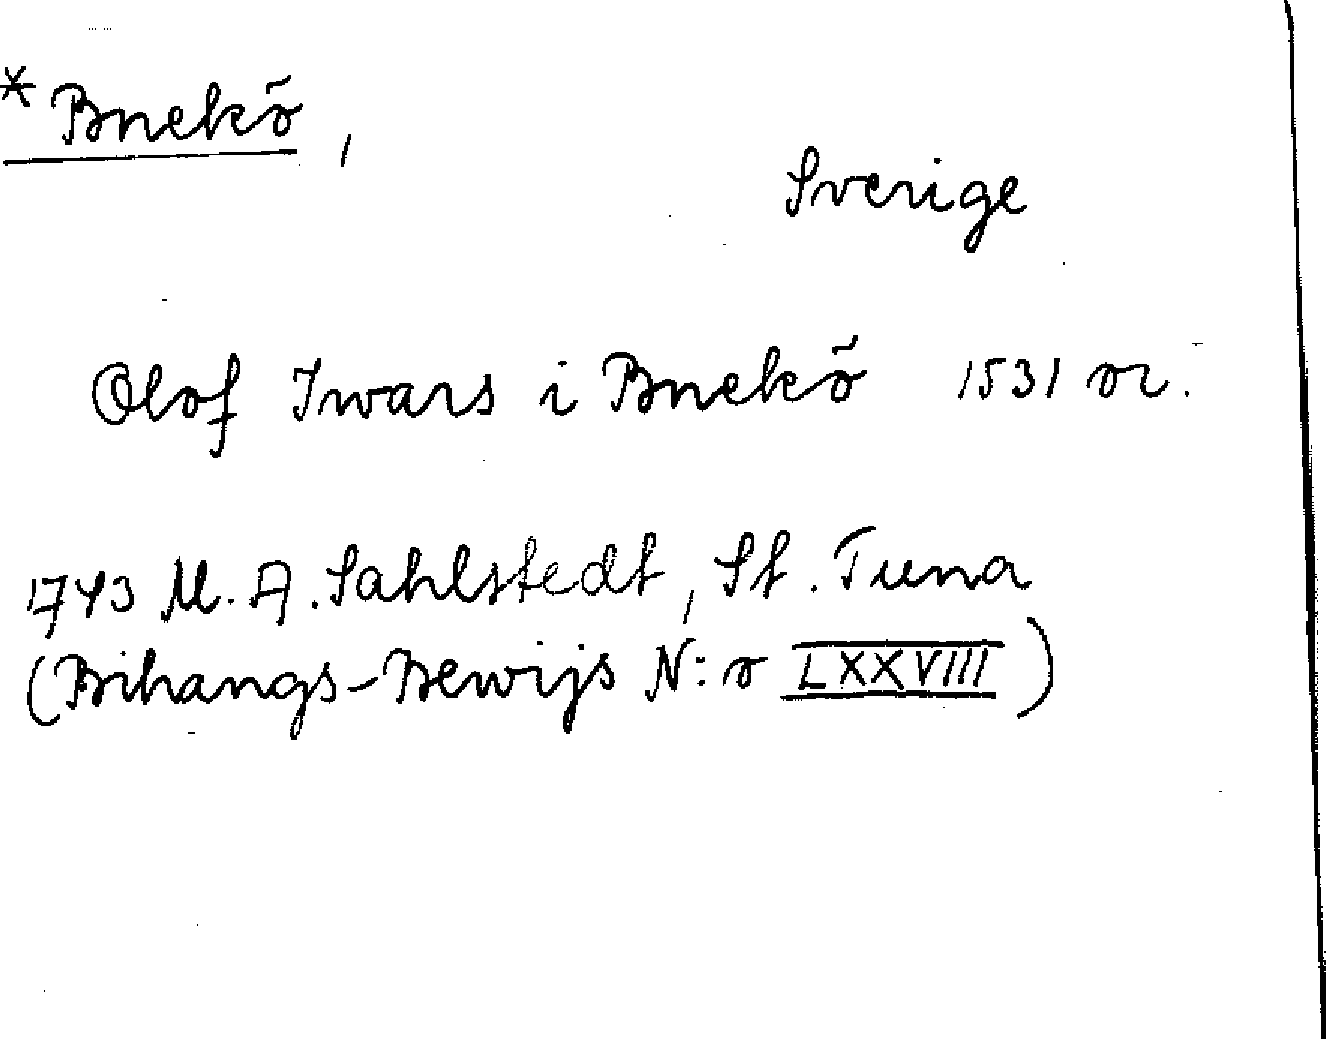 *Bnekö,
Sverige
Olof Iwars i Bnekö 1531 or.
1743 M. A. Sahlstedt, St. Tuna
(Bihangs-Bewijs N:o LXXVIII)